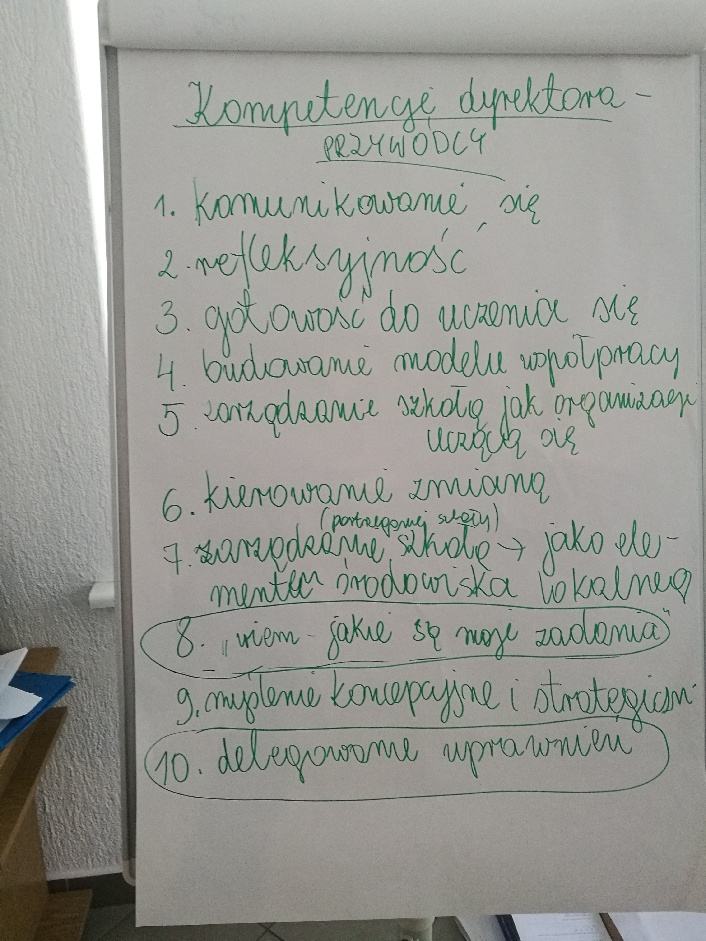 Kompetencje dyrektora -
PRZYWÓDCY
1. komunikowanie się
2. refleksyjność
3. gotowość do uczenia się
4. budowanie modelu współpracy
5. zarządzanie szkołą jak organizacją
uczącą się
6. kierowanie zmianą
7. zarządzanie szkołą → jako ele-
mentem środowiska lokalnego
8. „wiem - jakie są moje zadania"
9. myślenie koncepcyjne i strategiczn
10. delegowanie uprawnień